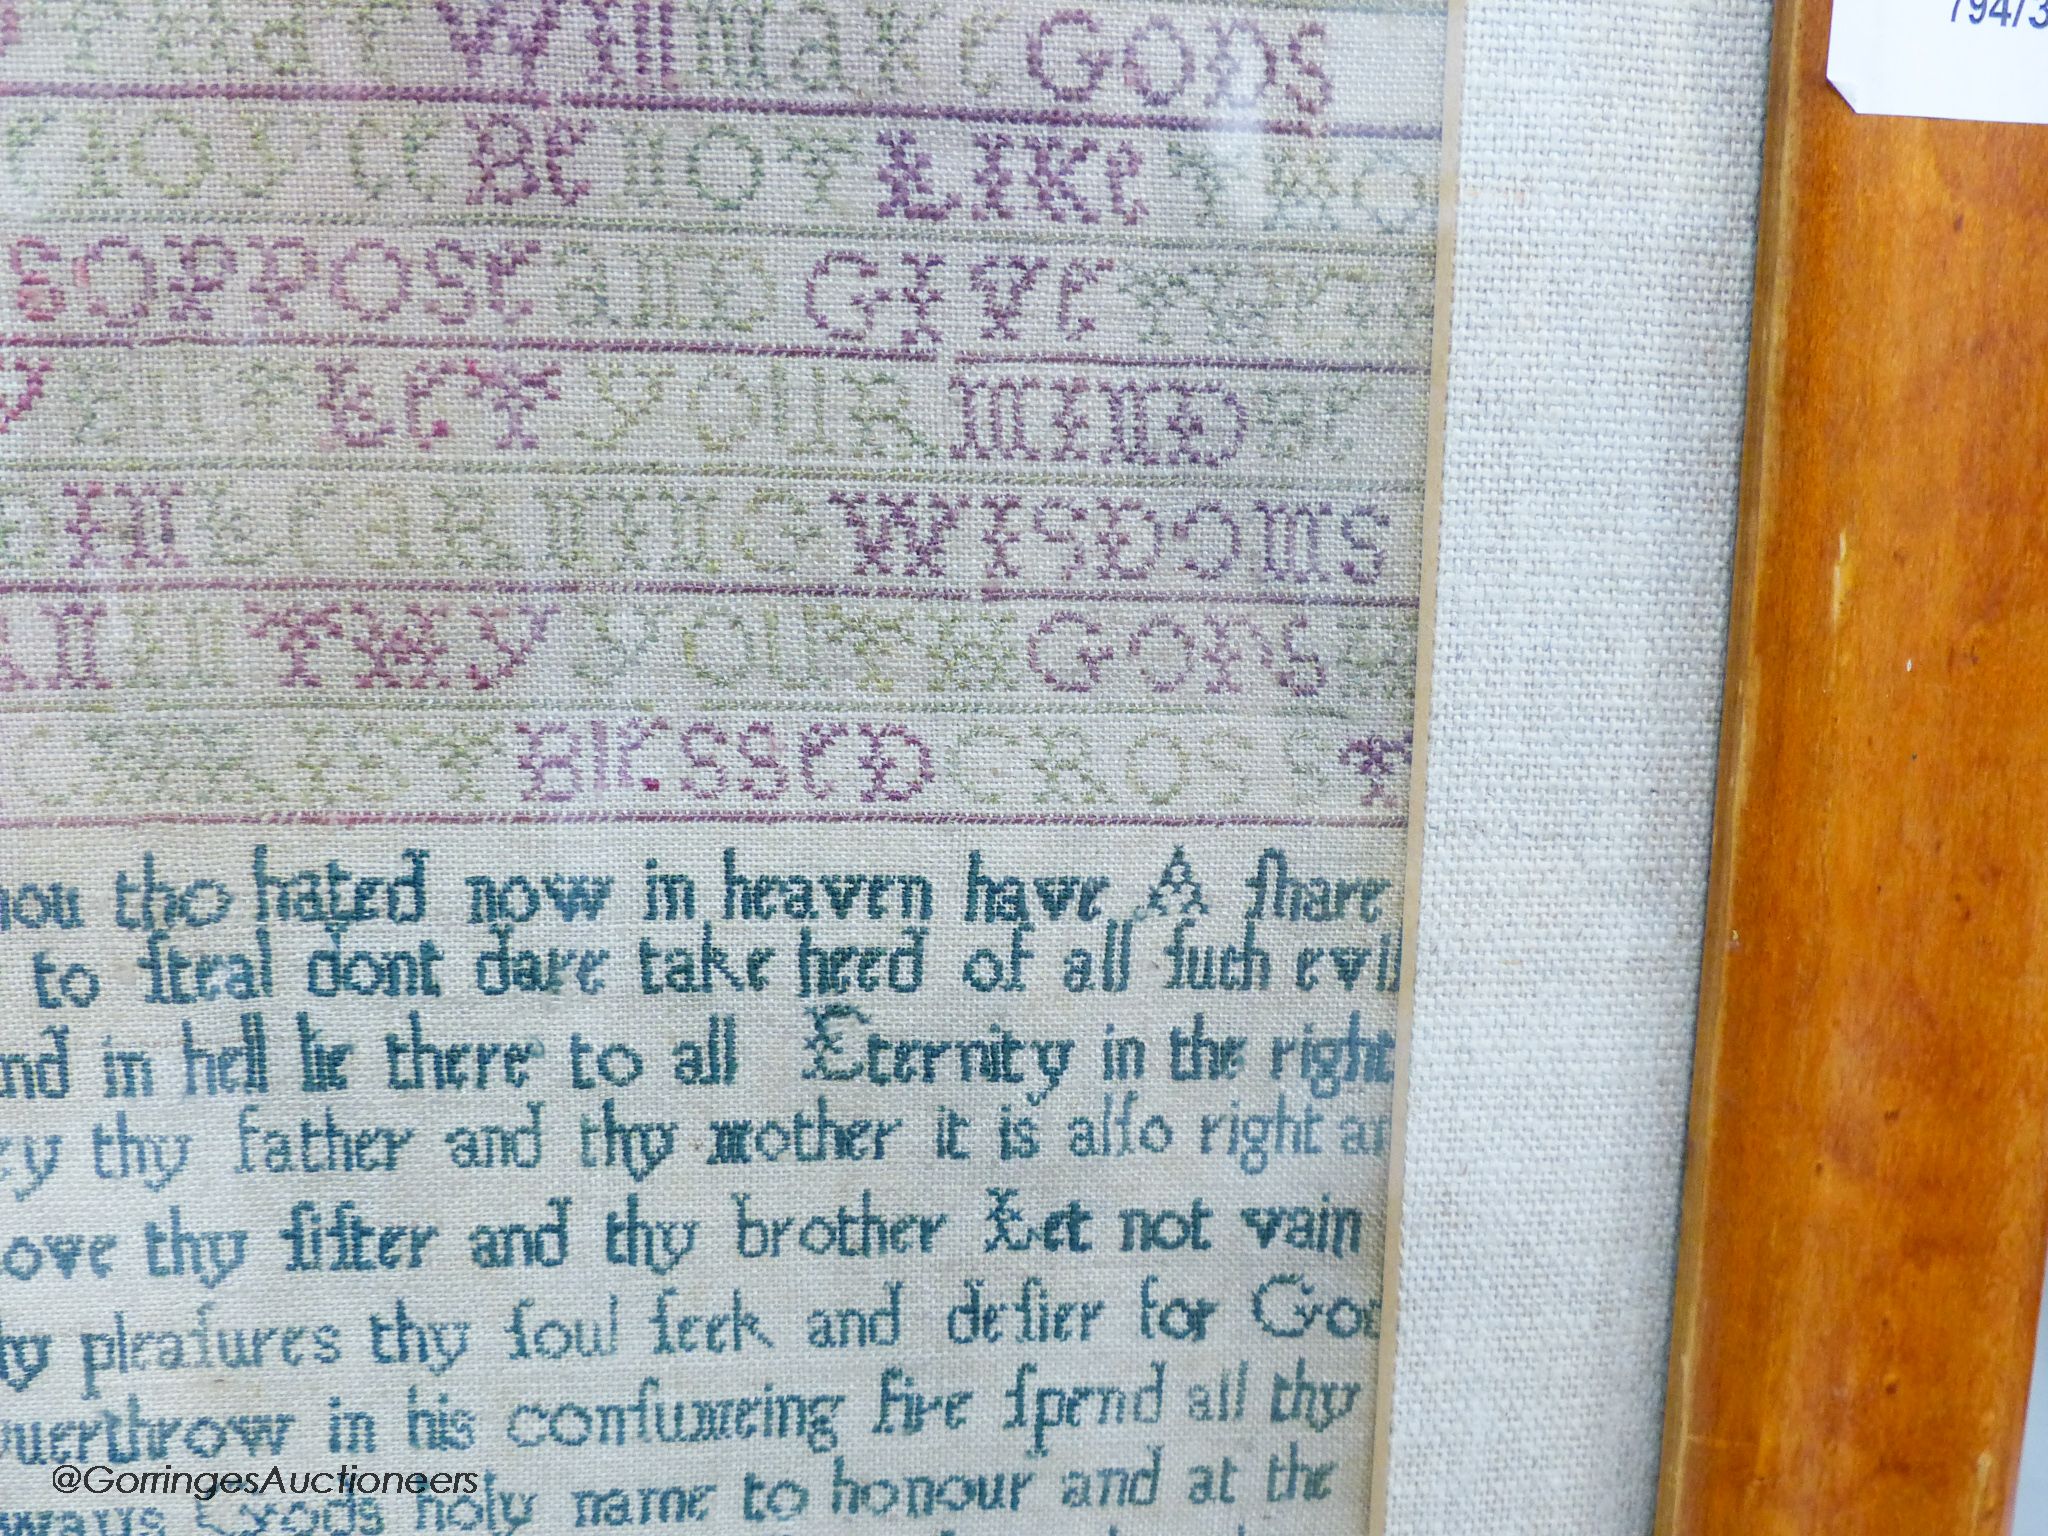 794/3
WILL make GODS
BE NOT LIKE THO
SOPPOSE AND GIVE
LET YOUR MIND
LEARNING WISDOMS
IN THY YOUTH GODS
BLESSED CROSS T
hou tho hated now in heaven have A ſhare
to ſteal dont dare take heed of all ſuch evil
nd in hell lie there to all Eternity in the right
ey thy father and thy mother it is alſo right an
ove thy ſiſter and thy brother Let not vain
hy pleaſures thy ſoul ſeek and deſier for God
uerthrow in his conſumeing fire ſpend all thy
ways Gods holy name to honour and at the
@GorringesAuctioneers